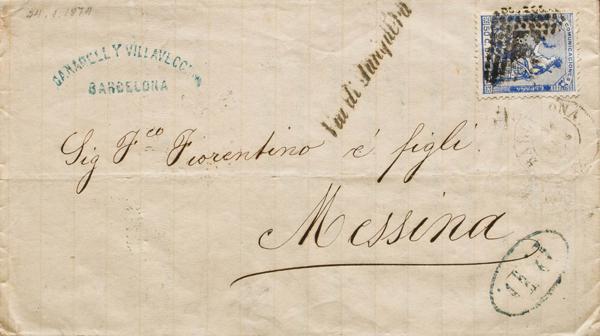 24.1.1874
CANADELL Y VILLAVECCHIA
BARCELONA
Via di Junquera
COMUNICACIONES
ESPAÑA
Sig Fco Fiorentino é figli.
Messina